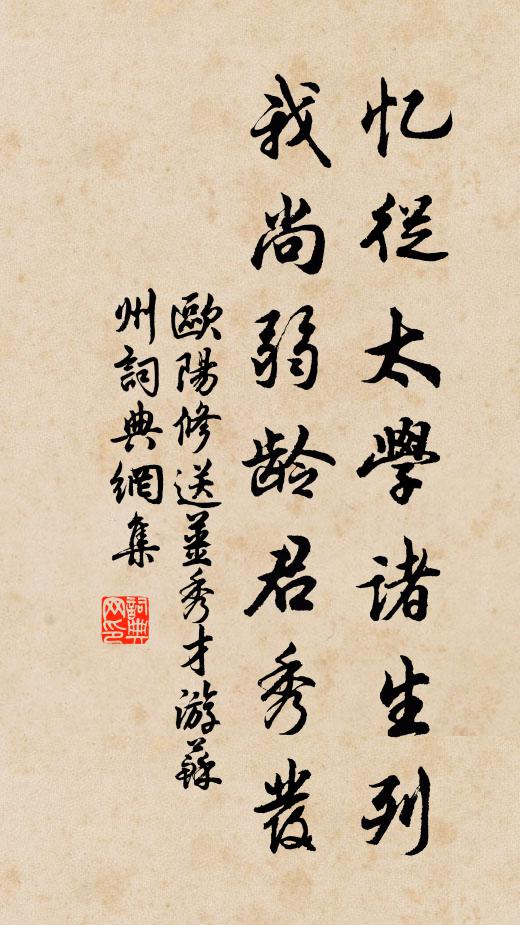 忆從太學諸生列
我尚弱龄君秀發
歐陽修送薑秀才游蘇
州詞典網集
詞典
网印